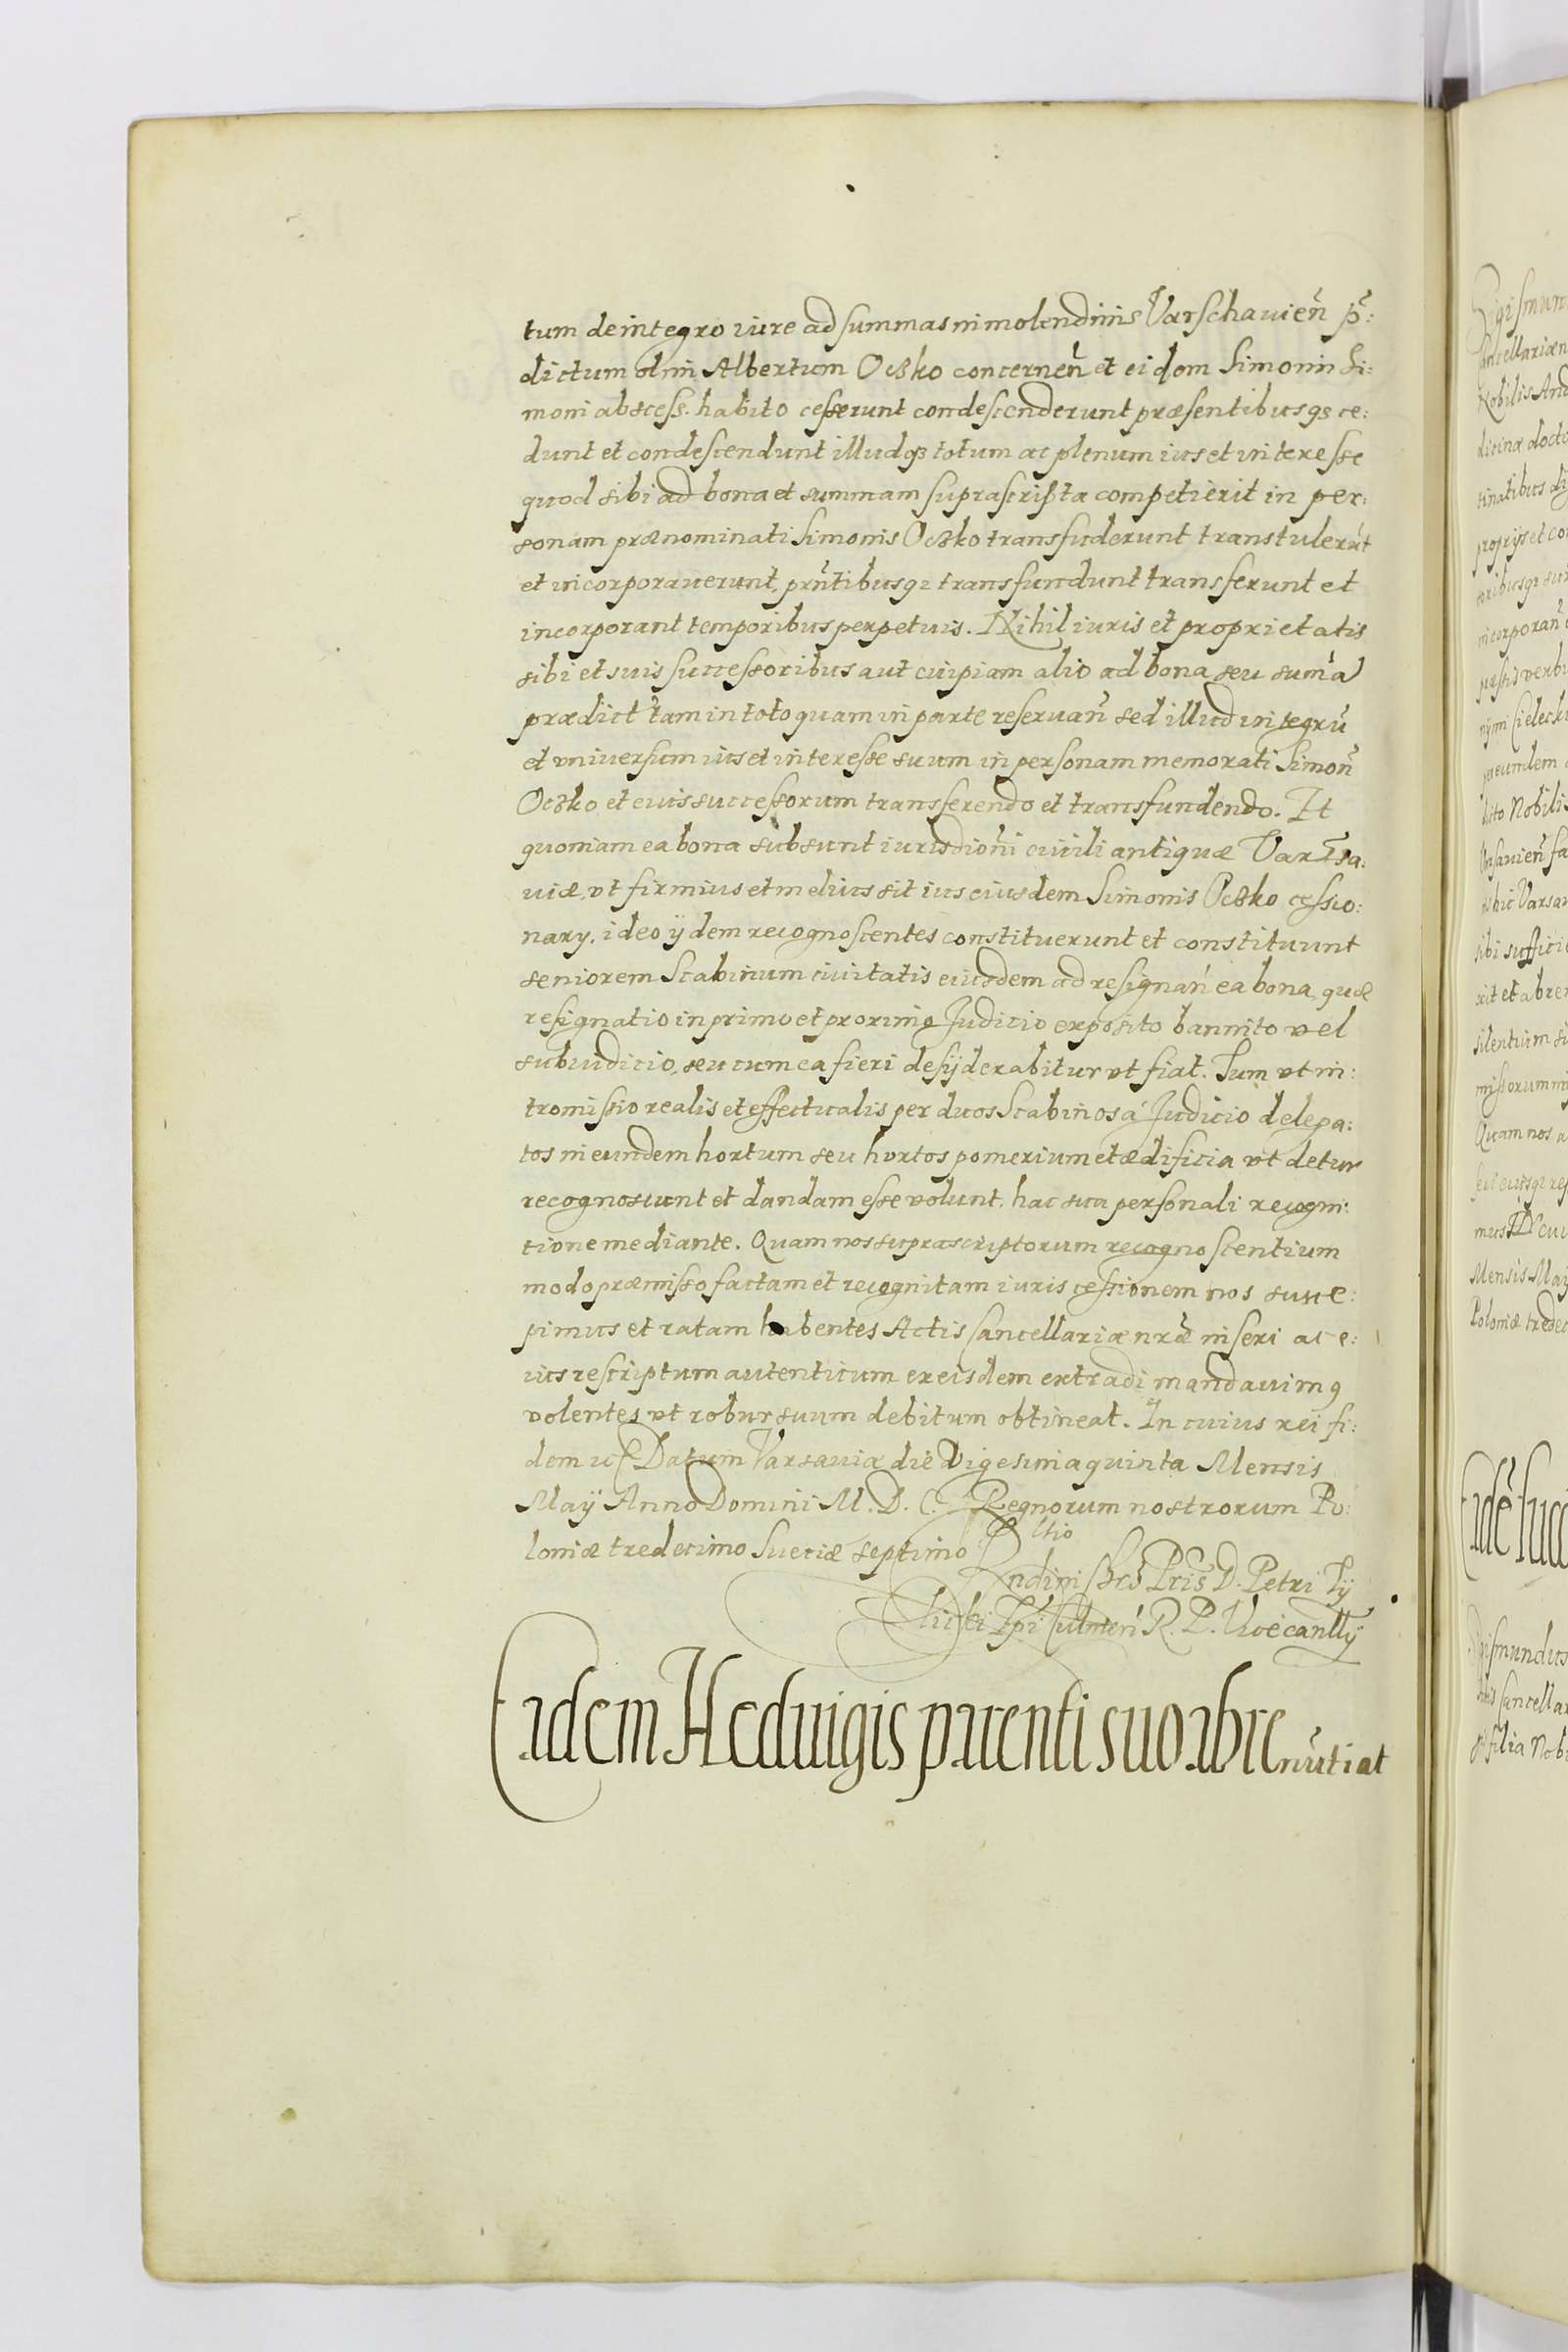 tum de integro iure ad summas in molendinis Varschavien̄ p̄:
dictum olim Albertum Oczko concernen̄ et eidem Simonin Si:
moni abscess. habito cesserunt condescenderunt præsentibusqз ce:
dunt et condescendunt illudqз totum ac plenum ius et interesse
quod sibi ad bona et summam suprascripta competierit in per:
sonam prænominati Simonis Oczko transfuderunt transtulerūt
et incorporaverunt, prn̄tibusqз transfundunt transferunt et
incorporant temporibus perpetuis. Nihil iuris et proprietatis
sibi et suis successoribus aut cuipiam alio ad bona seu sum̄a
prædict tam in toto quam in parte reservan̄ sed illud integrū
et universum ius et interesse suum in personam memorati Simon̄
Oczko et eius successorum transferendo et transfundendo. Et
quoniam ea bona subsunt iurisdioni̅ civili antiquæ Varsa:
viæ, vt firmius et melius sit ius eiusdem Simonis Oczko cessio:
nary. ideo ijdem recognoscentes constituerunt et constituunt
seniorem Scabinum civitatis eiusdem ad resignan̄ ea bona, quæ
resignatio in primo et proximo Judicio exposito bannito vel
subiudicio, seu cum ea fieri desÿderabitur vt fiat. Tum vt in:
tromissio realis et effectualis per duos Scabinos á Judicio delega:
tos in eundem hortum seu hortos pomerium et ædificia vt detur
recognoscunt et dandam esse volunt, hac sua personali recogni:
tione mediante. Quam nos suprascriptorum recognoscentium
modo præmisso factam et recognitam iuris cessionem nos susce:
pimus et ratam habentes Actis Cancellariæ nr̄æ inseri ac e:
ius rescriptum autenticum ex eisdem extradi mandavimꝰ
volentes vt robur suum debitum obtineat. In cuius rei fi:
dem Datum Varsaviæ die Vigesima quinta Mensis
Maÿ Anno Domini M. D. C. Regnorum nostrorum Po:
loniæ tredecimo Sueciæ septimo
Rltio
Rndini Pris D. Petri Tÿ
licki Epi Culmen̄ R. P. Vicecanllÿ
Eadem Heduigis parenti suo abrenūtiat